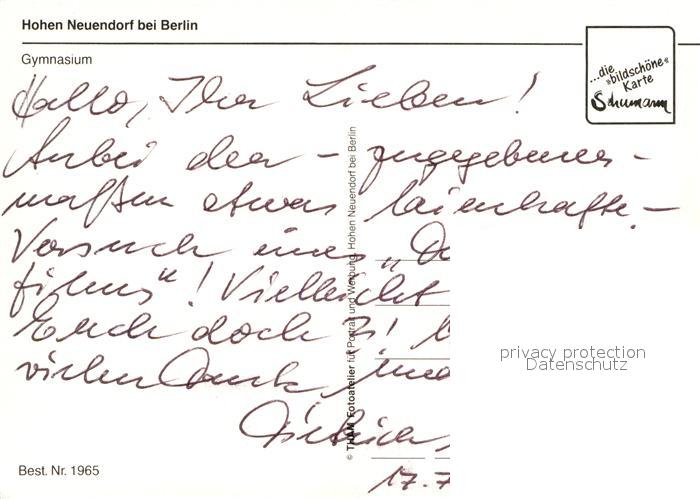 Hohen Neuendorf bei Berlin
Gymnasium
...die
»bildschöne«
Karte
Schumann
Hallo, Ihr Lieben!
Anbei der – zugegebener-
maßen etwas laienhafte –
Versuch eines „Do
films“! Vielleicht
Euch doch
vielen Dank, und
17.7
© THAM Fotoatelier für Portrait und Werbung, Hohen Neuendorf bei Berlin
privacy protection
Datenschutz
Best. Nr. 1965